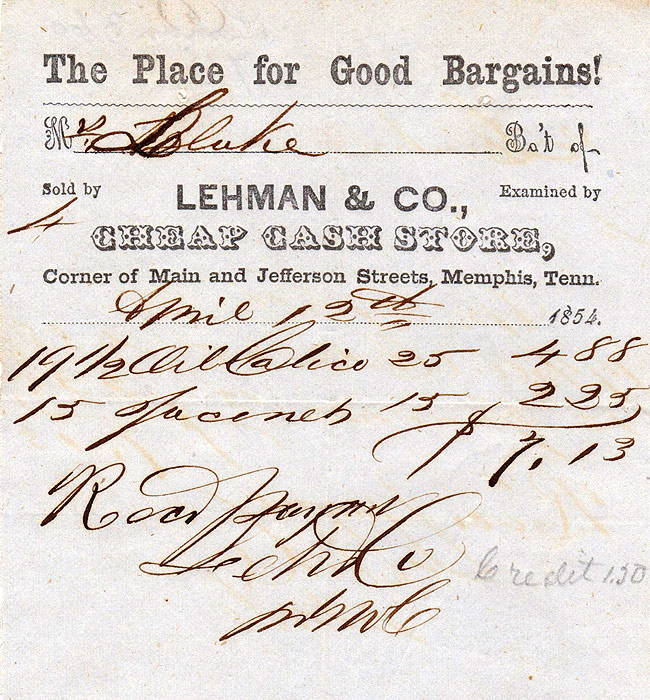 The Place for Good Bargains!
Mr Blake Bo't of
Sold by LEHMAN & CO., Examined by
4
CHEAP CASH STORE,
Corner of Main and Jefferson Streets, Memphis, Tenn.
April 12th 1854.
19 1/2 Oil Calico 25 4 88
15 Jaconets 15 2 25
$ 7, 13
Recd paymt
Leh & Co
Credit 1.50